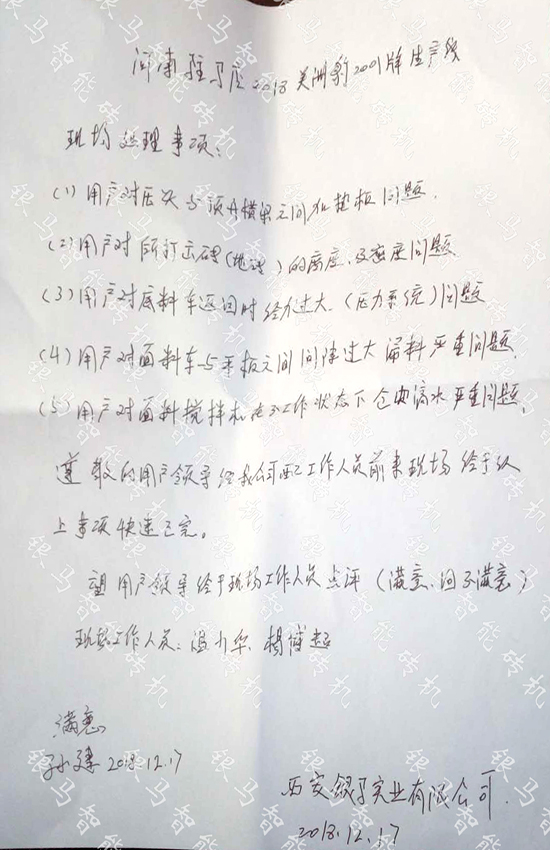 河南驻马店2018美洲豹2001牌生产线
现场处理事项：
(1)用户对压头与顶A横梁之间加垫板问题.
(2)用户对所打出砖(地砖)的高度、及密度问题
(3)用户对底料车返回时 过大.(压力系统)问题
(4)用户对面料车与平板之间间隙过大漏料严重问题.
(5)用户对面料搅拌机在工作状态下仓内滴水严重问题.
尊敬的用户领导经我公司配工作人员前来现场给予以
上事项快速已完。
望用户领导给予现场工作人员点评(满意、问不满意)
现场工作人员：温 华 杨博超
满意
孙 建 2018.12.17
西安银马实业有限公司.
2018.12.17
银马智能砖机